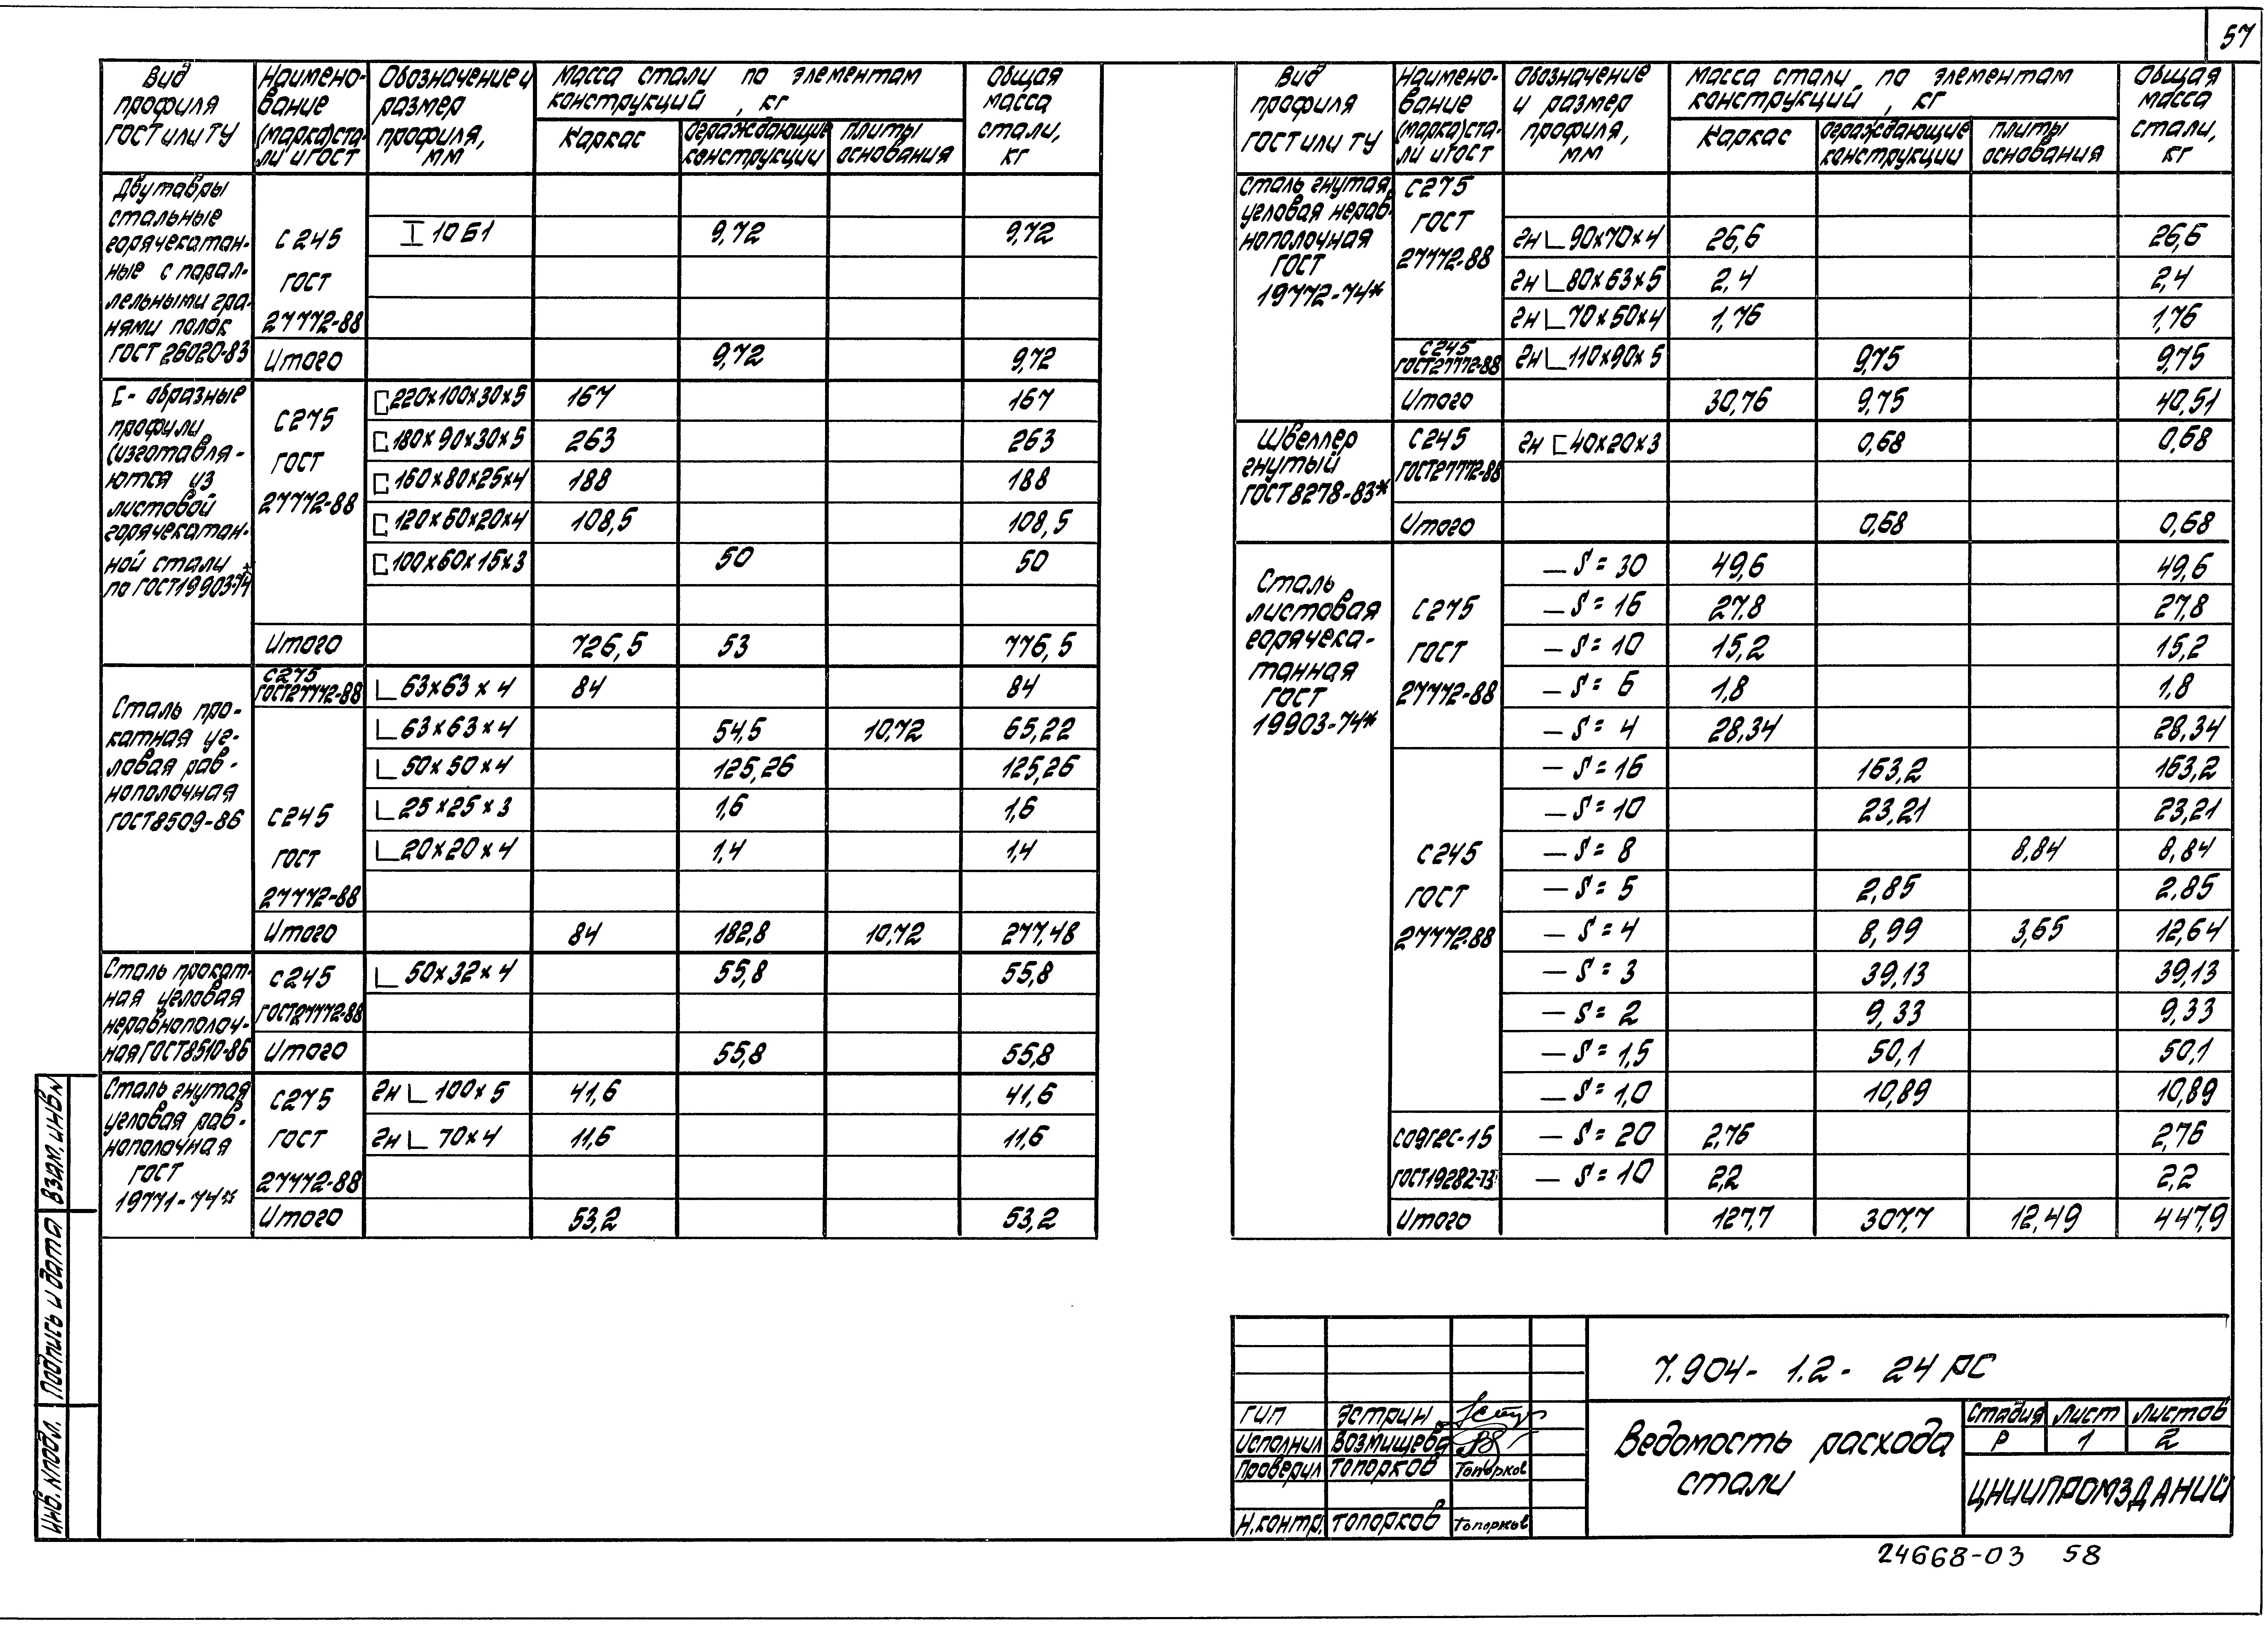 57
Вид профиля ГОСТ или ТУ
Наименование (марка) стали и ГОСТ
Обозначение и размер профиля, мм
Масса стали по элементам конструкций, кг
Каркас
Ограждающие конструкции
Плиты основания
Общая масса стали, кг
Двутавры
стальные
горячекатан-
ные с парал-
лельными гра-
нями полок
ГОСТ 26020-83
С245
ГОСТ
27772-88
I 10Б1 9,72 9,72
Итого 9,72 9,72
С-образные
профили
(изготавля-
ются из
листовой
горячекатан-
ной стали
по ГОСТ19903-74*
С275
ГОСТ
27772-88
[220х100х30х5 167 167
[180х90х30х5 263 263
[160х80х25х4 188 188
[120х60х20х4 108,5 108,5
[100х60х15х3 50 50
Итого 726,5 53 776,5
Сталь про-
катная уг-
ловая рав-
нополочная
ГОСТ8509-86
С275
ГОСТ27772-88
∟63х63х4 84 84
С245
ГОСТ
27772-88
∟63х63х4 54,5 10,72 65,22
∟50х50х4 125,26 125,26
∟25х25х3 1,6 1,6
∟20х20х4 1,4 1,4
Итого 84 182,8 10,72 277,48
Сталь прокат-
ная угловая
неравнополоч-
ная ГОСТ8510-86
С245
ГОСТ27772-88
∟50х32х4 55,8 55,8
Итого 55,8 55,8
Сталь гнутая
угловая рав-
нополочная
ГОСТ
19771-74*
С275
ГОСТ
27772-88
гн∟100х5 41,6 41,6
гн∟70х4 11,6 11,6
Итого 53,2 53,2
Вид профиля ГОСТ или ТУ
Наименование (марка) стали и ГОСТ
Обозначение и размер профиля, мм
Масса стали по элементам конструкций, кг
Каркас
Ограждающие конструкции
Плиты основания
Общая масса стали, кг
Сталь гнутая,
угловая нерав-
нополочная
ГОСТ
19772-74*
С275
ГОСТ
27772-88
гн∟90х70х4 26,6 26,6
гн∟80х63х5 2,4 2,4
гн∟70х50х4 1,76 1,76
С245
ГОСТ27772-88
гн∟110х90х5 9,75 9,75
Итого 30,76 9,75 40,51
Швеллер
гнутый
ГОСТ8278-83*
С245
ГОСТ27772-88
гн[40х20х3 0,68 0,68
Итого 0,68 0,68
Сталь
листовая
горячека-
танная
ГОСТ
19903-74*
С275
ГОСТ
27772-88
— S = 30 49,6 49,6
— S = 16 27,8 27,8
— S = 10 15,2 15,2
— S = 6 1,8 1,8
— S = 4 28,34 28,34
С245
ГОСТ
27772-88
— S = 16 163,2 163,2
— S = 10 23,21 23,21
— S = 8 8,84 8,84
— S = 5 2,85 2,85
— S = 4 8,99 3,65 12,64
— S = 3 39,13 39,13
— S = 2 9,33 9,33
— S = 1,5 50,1 50,1
— S = 1,0 10,89 10,89
С09Г2С-15
ГОСТ19282-73
— S = 20 2,76 2,76
— S = 10 2,2 2,2
Итого 127,7 307,7 12,49 447,9
Взам. инв.№
Подпись и дата
Инв.№подл.
7.904-1.2-24 РС
ГИП Эстрин
Исполнил Возмищева
Проверил Топорков Топорков
Н.контр. Топорков Топорков
Ведомость расхода
стали
Стадия Лист Листов
Р 1 2
ЦНИИПРОМЗДАНИЙ
24668-03 58